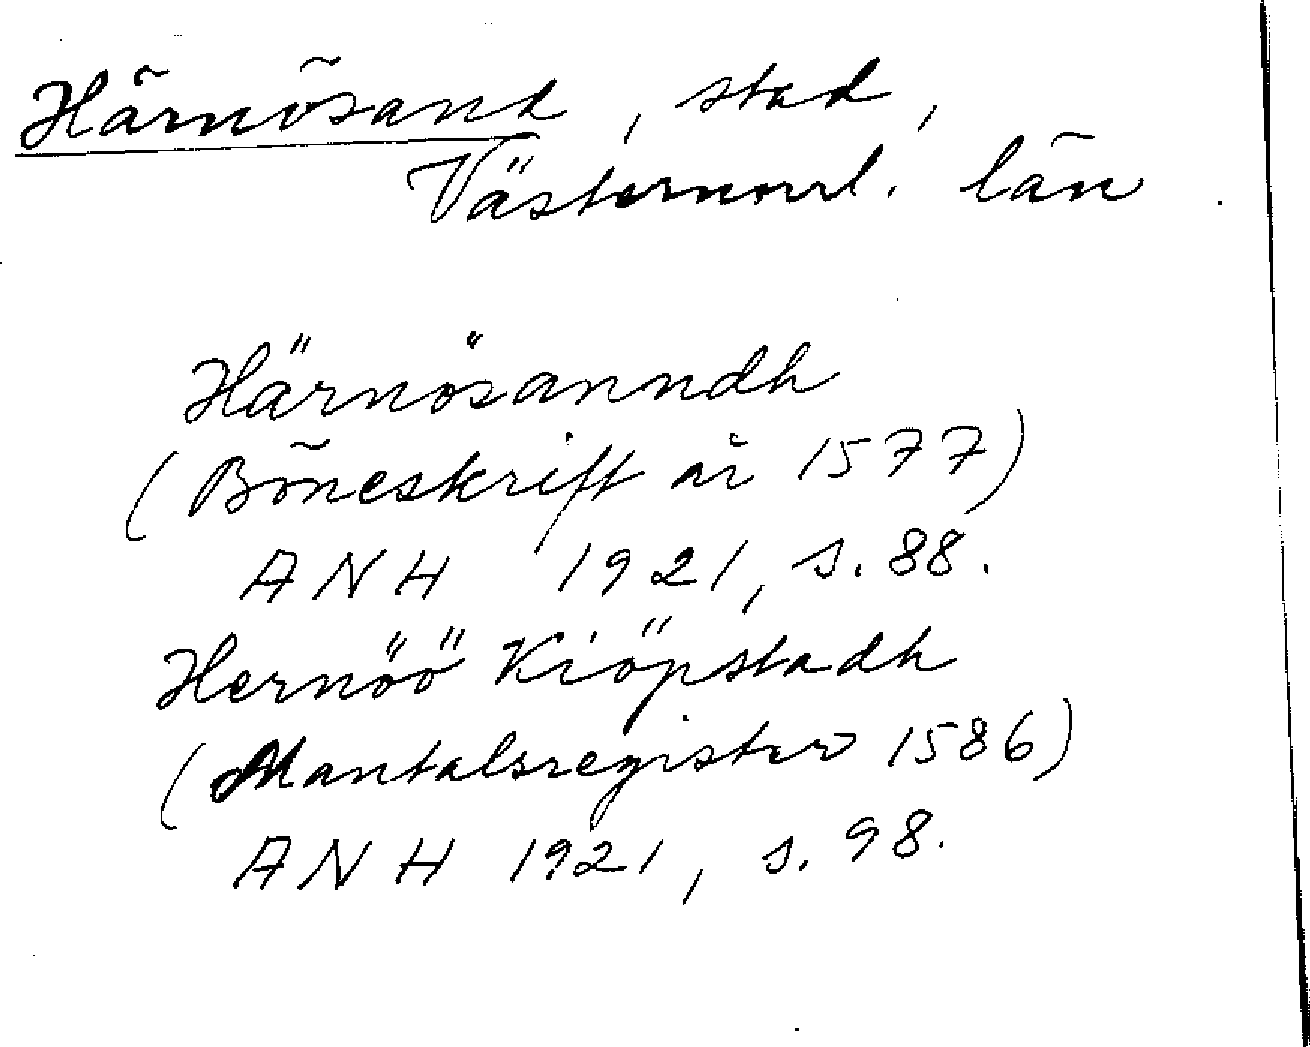 Härnösand, stad,
Västernorrl. län
Härnösanndh
(Böneskrift år 1577)
ANH 1921, s. 88.
Hernöö Kiöpstadh
(Mantalsregister 1586)
ANH 1921, s. 98.